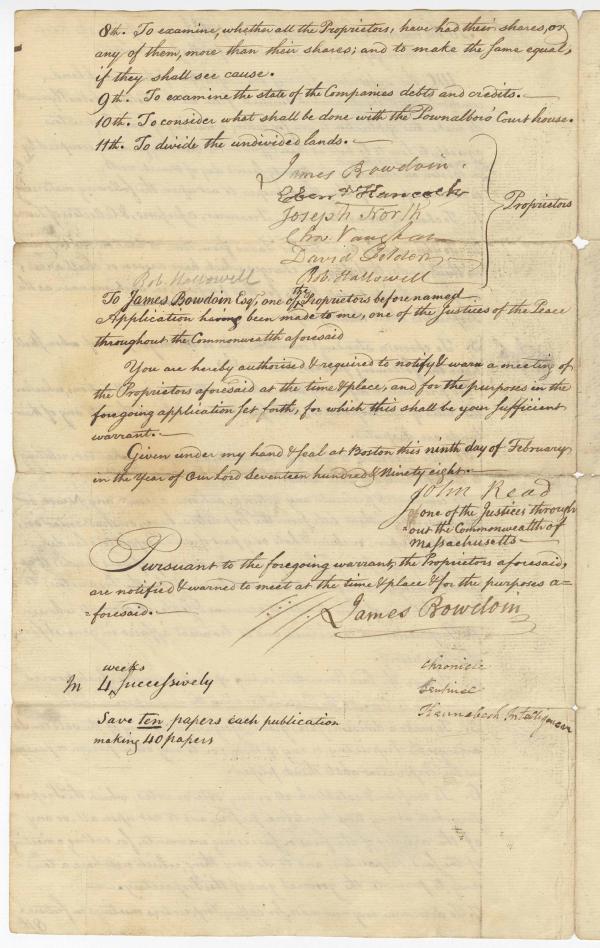 8th. To examine, whether all the Proprietors, have had their shares, or
any of them, more than their shares; and to make the same equal,
if they shall see cause.
9th. To examine the state of the Companies debts and credits.
10th. To consider what shall be done with the Pownalboro' Court house.
11th. To divide the undivided lands.
James Bowdoin.
Ebenr Hancock
Joseph North
Chas. Vaughan
David
Rob. Hallowell
Proprietors
Rob. Hallowell
To James Bowdoin Esqr, one of the Proprietors before named
Application having been made to me, one of the Justices of the Peace
throughout the Commonwealth aforesaid
You are hereby authorised & required to notify & warn a meeting of
the Proprietors aforesaid at the time & place, and for the purposes in the
foregoing application set forth, for which this shall be your sufficient
warrant.
Given under my hand & seal at Boston this ninth day of February
in the Year of Our Lord Seventeen hundred & Ninety eight.
John Read
one of the Justices through
=out the Commonwealth of
Massachusetts
Pursuant to the foregoing warrant, the Proprietors aforesaid,
are notified & warned to meet at the time & place & for the purposes a=
=foresaid.
James Bowdoin
weeks
In 4 successively
Save ten papers each publication
making 40 papers
Chronicle
Centinel
Kennebeck Intelligencer